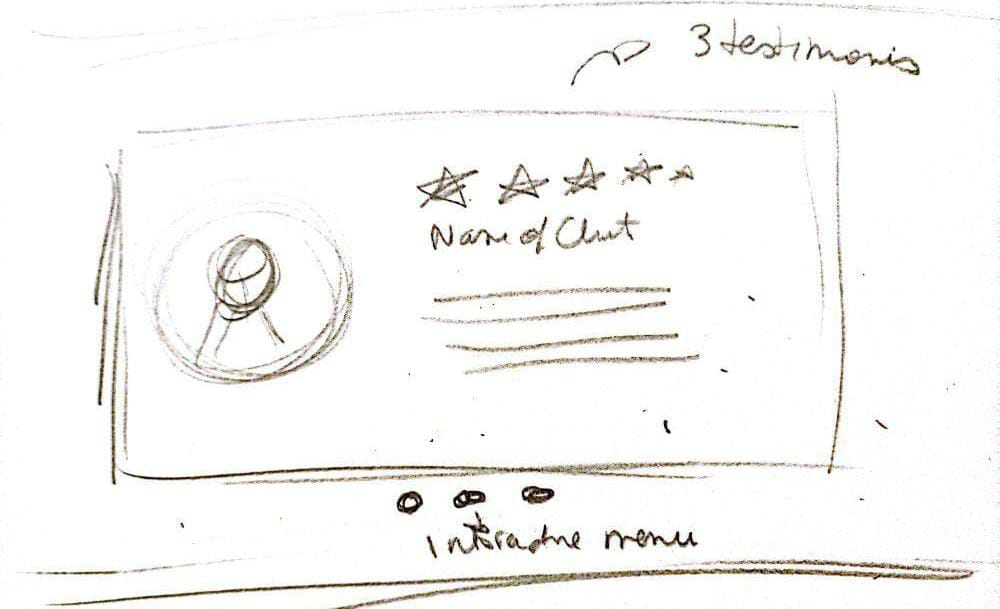 3 testimonis
Name of Client
Interactive menu